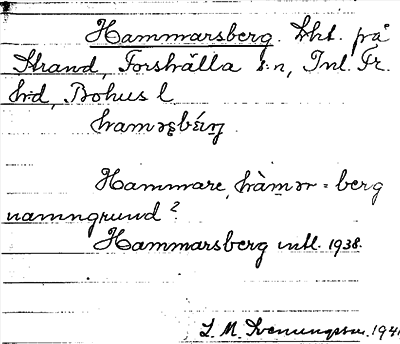 Hammarsberg. Lht. på
Strand, Forshälla s:n, Inl. Fr.
h:d, Bohus l.
Hammare, hàmər = berg
namngrund?
Hammarsberg intl. 1938.
S. M. Svenungsson. 1941